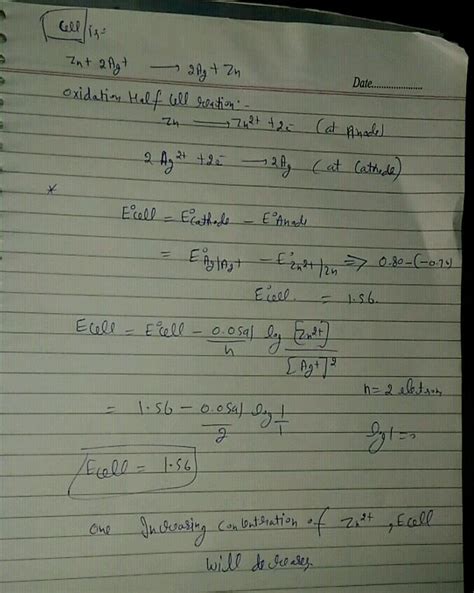 Cell is:-
Zn + 2Ag+ → 2Ag + Zn
Date....................
Oxidation Half Cell reaction:-
Zn → Zn2+ + 2e- (at Anode)
2Ag2+ + 2e- → 2Ag (at Cathode)
*
E°cell = E°Cathode - E°Anode
= E°Ag|Ag+ - E°Zn2+|Zn ⇒ 0.80-(-0.76)
E°cell = 1.56.
Ecell = E°cell - 0.0591/n log [Zn2+]/[Ag+]2
n=2 electron
= 1.56 - 0.0591/2 log 1/1
log 1 =
Ecell = 1.56
one Increasing concentration of Zn2+, Ecell
will decreases